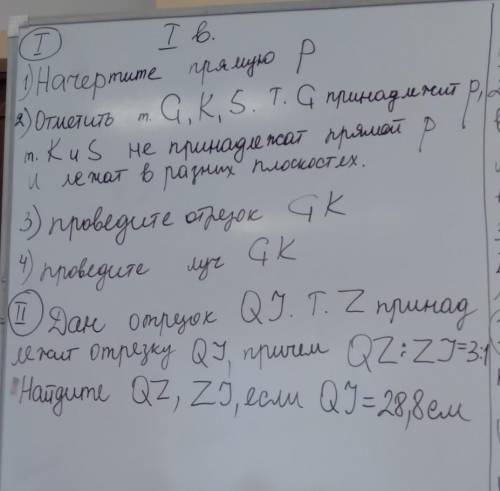 I
I в.
1) Начертите прямую P
2) Отметить т. G, K, S. Т. G принадлежит p,
т. K и S не принадлежат прямой P
и лежат в разних плоскостях.
3) проведите отрезок GK
4) проведите луч GK
II Дан отрезок QJ. Т. Z принад
лежит отрезку QJ, причем QZ:ZJ=3:1
Найдите QZ, ZJ, если QJ=28,8 см